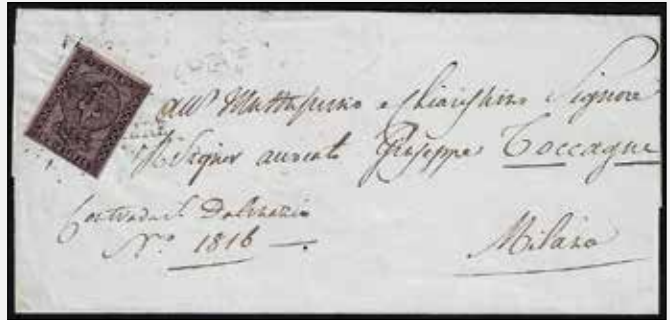 all' Illustrissimo e Chiarissimo Signore
Il Signor avvocato Giuseppe Toccagni
Contrada S. Dalmazio
N.º 1816
Milano